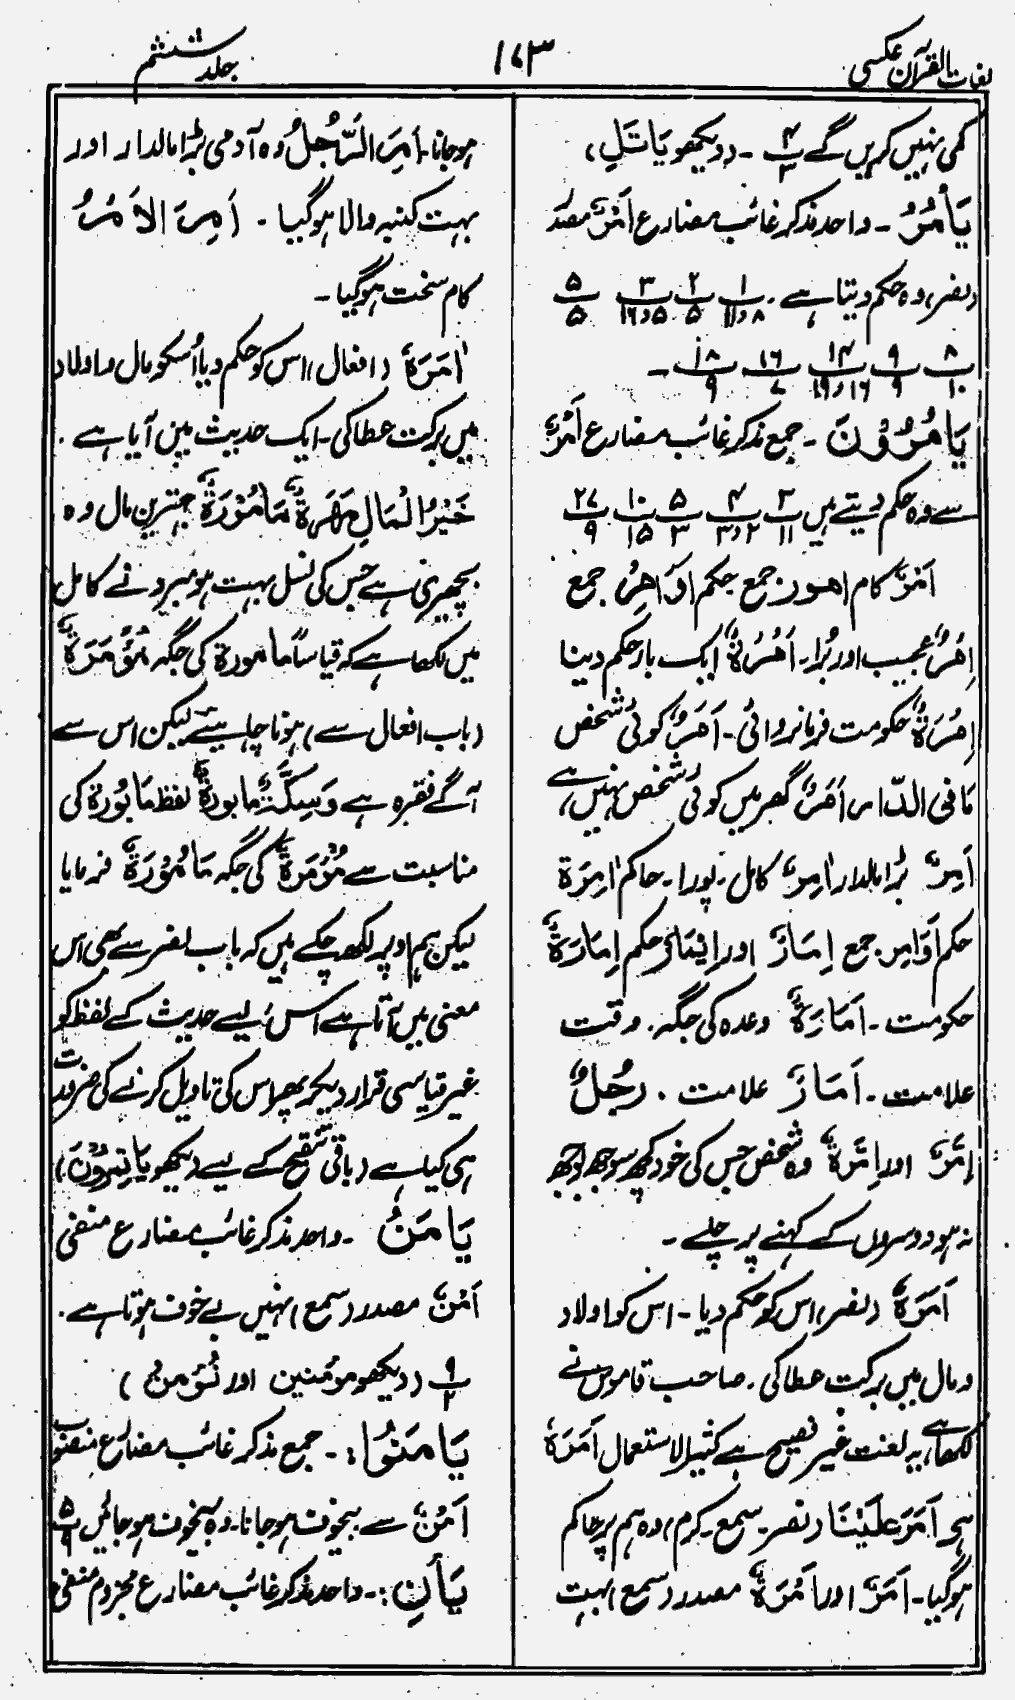 لغات القرآن عکسی
۱۷۳
جلد ششم
کمی نہیں کریں گے ۴/۳ ۔ (دیکھو یَاتَلِ)
یَأْمُرُ ۔ واحد مذکر غائب مضارع اَمْرٌ مصدر
(نصر) وہ حکم دیتا ہے ۔ ۱/۸ و ۱۱ ۲/۵ ۳/۵ و ۱۶ ۵/۵
۸/۱۰ ۹/۹ ۱۴/۱۶ و ۱۹ ۱۶/۷ ۱۸/۹ ۔
یَأمُرُوْنَ ۔ جمع مذکر غائب مضارع اَمْرٌ
سے وہ حکم دیتے ہیں ۳/۱۱ ۴/۲ و ۳ ۵/۳ ۱۰/۱۵ ۲۷/۹
اَمْرٌ کام امور جمع حکم اَوَاھِرُ جمع
اِمْرٌ عجیب اور بُرا ۔ اَمْرَۃٌ ایک بار حکم دینا
اِمْرَۃٌ حکومت فرمانروائی ۔ اَمَرٌ کوئی شخص
مَا فی الدّار اَمَرٌ گھر میں کوئی شخص نہیں ہے
اَمِرٌ بڑا مالدار اٰمِرٌ کامل ۔ پورا ۔ حاکم اٰمِرَۃ
حکم اَوَامِر جمع اِمَارٌ اور اِیتِمَارٌ حکم اِمَارَۃٌ
حکومت ۔ اَمَارَۃٌ وعدہ کی جگہ ۔ وقت
علامت ۔ اَمَارٌ علامت ۔ رجُلٌ
اِمَّرٌ اور اِمَّرَۃٌ وہ شخص جس کی خود کچھ سوجھ بوجھ
نہ ہو دوسروں کے کہنے پر چلے ۔
اَمَرَہٗ (نصر) اس کو حکم دیا ۔ اس کو اولاد
و مال میں برکت عطا کی ۔ صاحب قاموس نے
لکھا ہے یہ لغت غیر فصیح ہے کثیر الاستعمال اٰمَرَہٗ
ہی اَمَرَ عَلَیْنَا (نصر ۔ سمع ۔ کرم) وہ ہم پر حاکم
ہو گیا ۔ اَمَرٌ اور اَمَرَۃٌ مصدر (سمع) بہت
ہو جانا ۔ اَمِرَ الرَّجُلُ وہ آدمی بڑا مالدار اور
بہت کنبہ والا ہو گیا ۔ اَمِرَ الاَمْرُ
کام سخت ہو گیا ۔
اٰمَرَہٗ (افعال) اس کو حکم دیا اُسکو مال و اولاد
میں برکت عطا کی ۔ ایک حدیث میں آیا ہے ۔
خَیْرُ الْمَالِ مَھْرَۃٌ مَامُوْرَۃٌ بہترین مال وہ
بچھیری ہے جس کی نسل بہت ہو مبرد نے کامل
میں لکھا ہے کہ قیاساً مامورۃ کی جگہ مُؤْمَرَۃٌ
(باب افعال سے) ہونا چاہیے لیکن اس سے
آگے فقرہ ہے وَسِکَّۃٌ مابورۃٌ لفظ مَابُورۃ کی
مناسبت سے مُؤْمَرَۃٌ کی جگہ مَامُوْرَۃٌ فرمایا
لیکن ہم اوپر لکھ چکے ہیں کہ باب نصر سے بھی اس
معنی میں آتا ہے اس لیے حدیث کے لفظ کو
غیر قیاسی قرار دیکر پھر اس کی تاویل کرنے کی ضرورت
ہی کیا ہے (باقی تنقیح کے لیے دیکھو یَاتَمِرُوْنَ)
یَامَنُ ۔ واحد مذکر غائب مضارع منفی
اَمْنٌ مصدر (سمع) نہیں بے خوف ہوتا ہے ۔
۹/۲ (دیکھو مومنین اور نُؤْمِنُ)
یَامَنُوْا : ۔ جمع مذکر غائب مضارع منصوب
اَمْنٌ سے بیخوف ہو جانا ۔ وہ بیخوف ہو جائیں ۵/۹
یَأنِ : ۔ واحد مذکر غائب مضارع مجزوم منفی